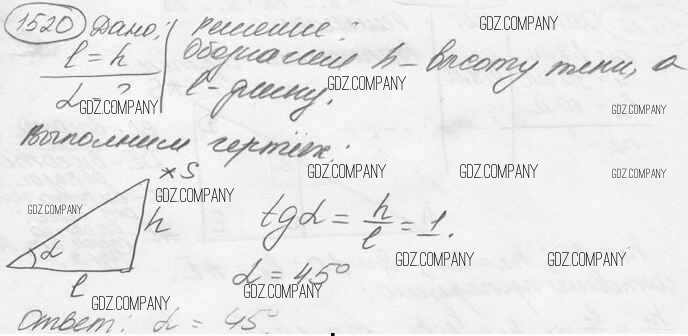 1520 Дано: Решение:
l = h Обозначим h - высоту тени, а
α - ? l - длину.
GDZ.COMPANY
GDZ.COMPANY
GDZ.COMPANY
GDZ.COMPANY
Выполним чертёж:
GDZ.COMPANY
GDZ.COMPANY
GDZ.COMPANY
S
GDZ.COMPANY
GDZ.COMPANY
h
tgα = h/l = 1.
α
GDZ.COMPANY
GDZ.COMPANY
α = 45°
l
GDZ.COMPANY
GDZ.COMPANY
Ответ: α = 45°